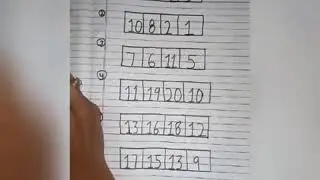 ② 10 8 2 1
③ 7 6 11 5
④ 11 19 20 10
13 16 18 12
17 15 13 9